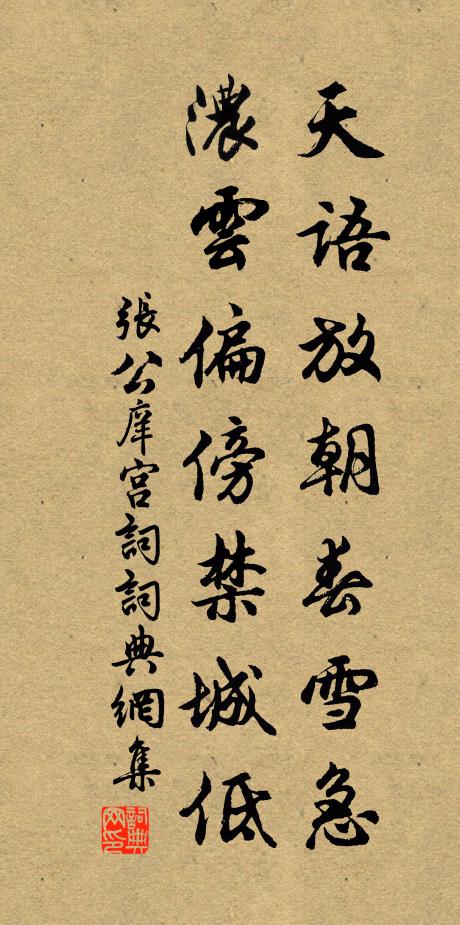 天語放朝春雪急
濃雲偏傍禁城低
張公庠宮詞詞典網集
詞典網印